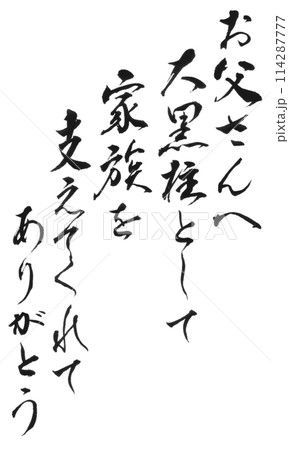 お父さんへ
大黒柱として
家族を
支えてくれて
ありがとう
pixta.jp - 114287777